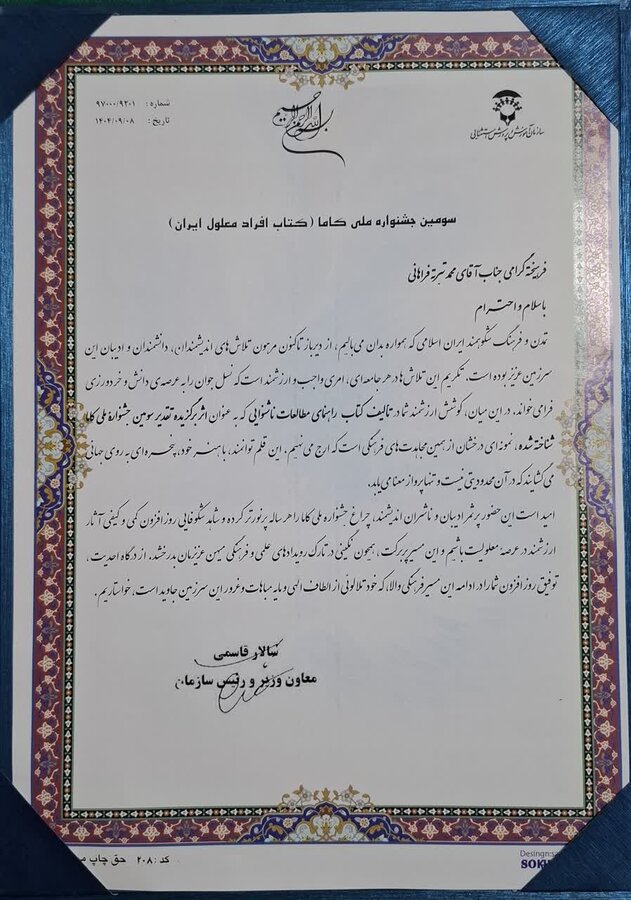 شماره : ۹۷۰۰۰/۹۲۰۱
تاریخ : ۱۴۰۴/۰۹/۰۸
بسم الله الرحمن الرحیم
سازمان آموزش و پرورش استثنایی
سومین جشنواره ملی کاما (کتاب افراد معلول ایران)
فرهیخته گرامی جناب آقای محمد تبرته فراهانی
با سلام و احترام
تمدن و فرهنگ شکوهمند ایران اسلامی که همواره بدان می‌بالیم، از دیرباز تاکنون مرهون تلاش‌های اندیشمندان، دانشمندان و ادیبان این
سرزمین عزیز بوده است. تکریم این تلاش‌ها در هر جامعه‌ای، امری واجب و ارزشمند است که نسل جوان را به عرصه‌ی دانش و خردورزی
فرا می‌خواند. در این میان، کوشش ارزشمند شما در تألیف کتاب راهنمای مطالعات ناشنوایی که به عنوان اثر برگزیده تقدیر سومین جشنواره ملی کاما
شناخته شده، نمونه‌ای درخشان از همین مجاهدت‌های فرهنگی است که ارج می‌نهیم. این قلم توانمند، با هنر خود، پنجره‌ای به روی جهانی
می‌گشاید که در آن محدودیتی نیست و تنها پرواز معنا می‌یابد.
امید است این حضور پرثمر ادیبان و ناشران اندیشمند، چراغ جشنواره ملی کاما را هر ساله پرنورتر کرده و شاهد شکوفایی روزافزون کمی و کیفی آثار
ارزشمند در عرصهٔ معلولیت باشیم و این مسیر پربرکت، همچون نگینی در تارک رویدادهای علمی و فرهنگی میهن عزیزمان بدرخشد. از درگاه احدیت،
توفیق روزافزون شما را در ادامه این مسیر فرهنگی والا، که خود تلالوئی از الطاف الهی و مایه مباهات و غرور این سرزمین جاوید است، خواستاریم.
سالار قاسمی
معاون وزیر و رئیس سازمان
کد : ۲۰۸ حق چاپ
Desingn:s
SOK